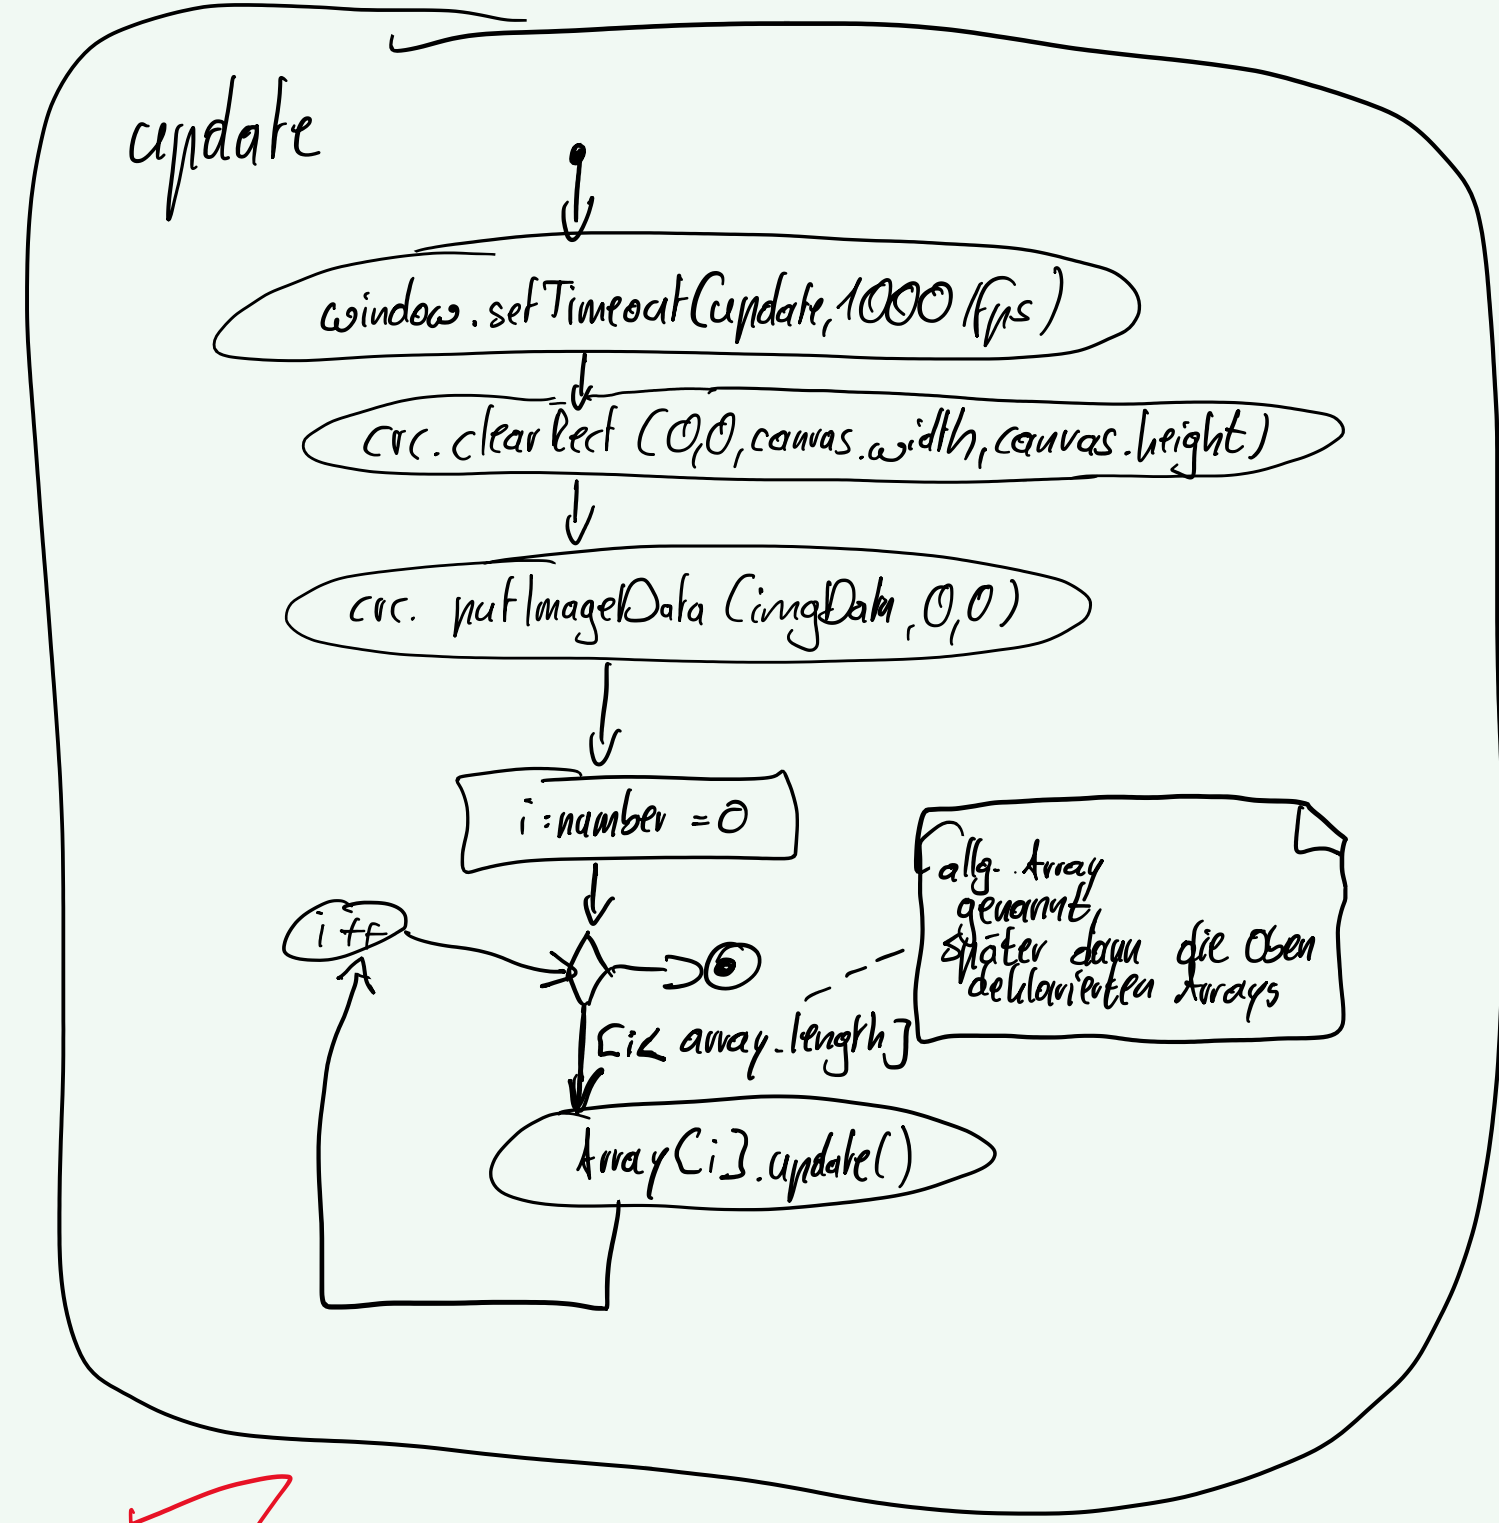 update
window.setTimeout(update, 1000/fps)
crc.clearRect (0,0,canvas.width,canvas.height)
crc. putImageData (imgData, 0,0)
i:number = 0
allg. Array
genannt,
später dann die Oben
deklarierten Arrays
i++
[i< array.length]
Array[i].update()